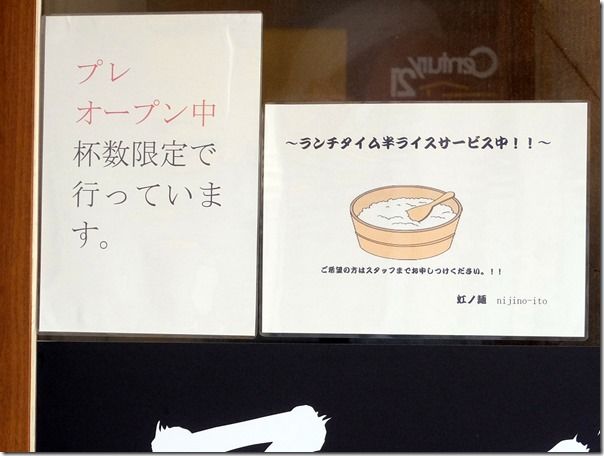 プレ
オープン中
杯数限定で
行っていま
す。
Century 21
～ランチタイム半ライスサービス中！！～
ご希望の方はスタッフまでお申しつけください。！！
虹ノ麺 nijino-ito